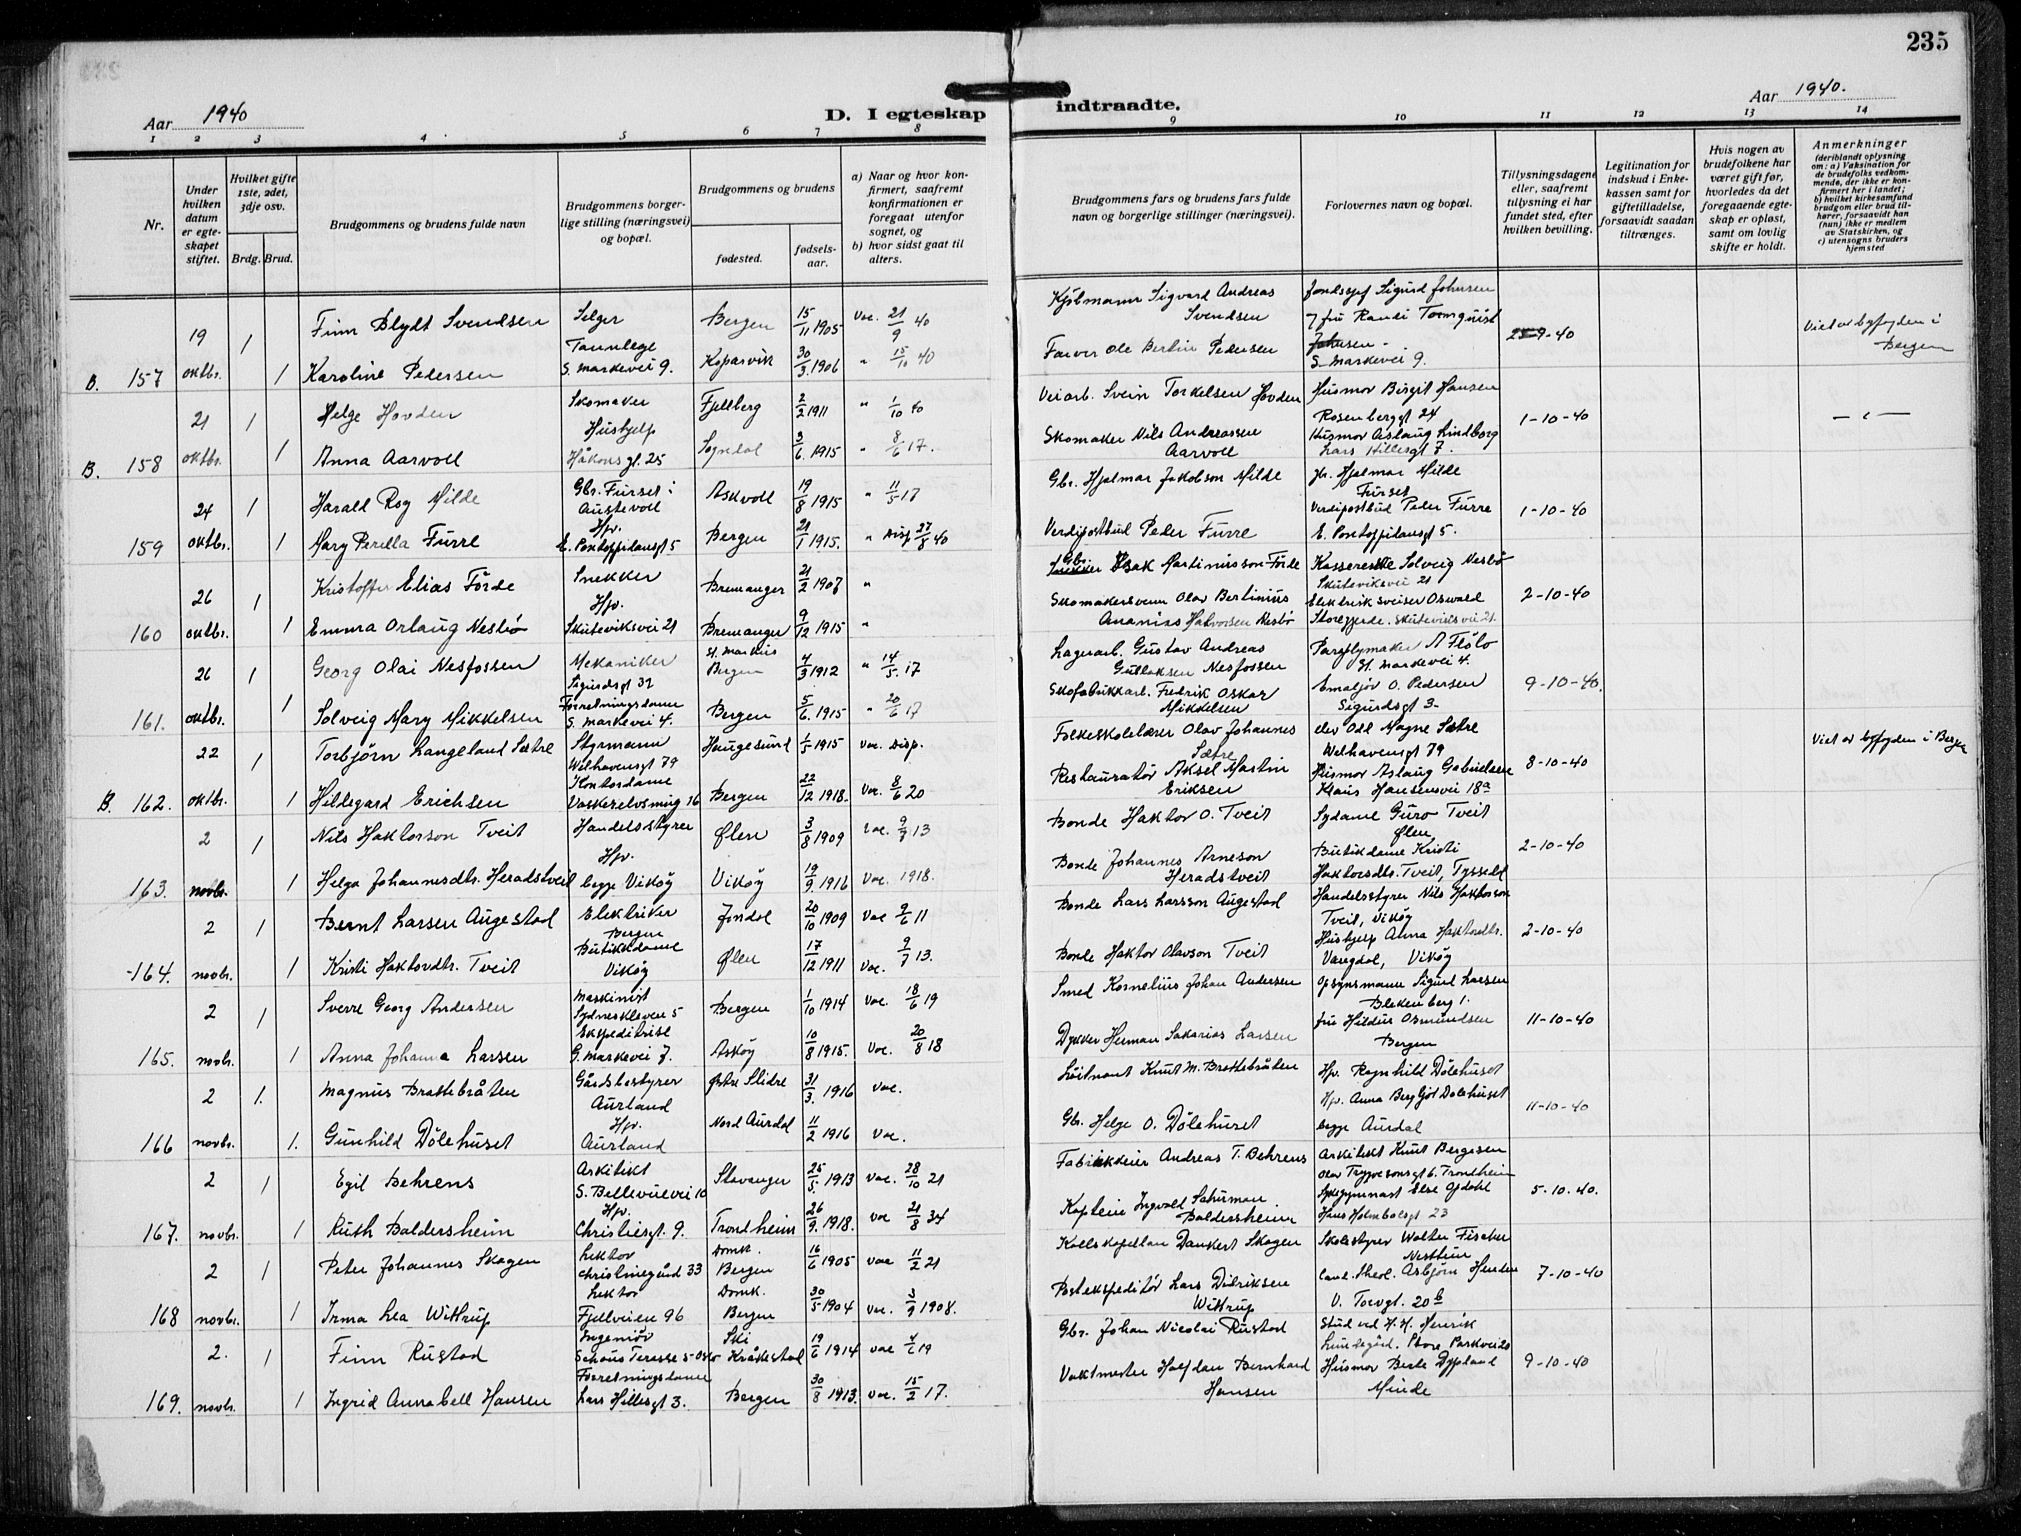 235
Aar 1940
D. I egteskap indtraadte.
Aar 1940.
1 2 3 4 5 6 7 8 9 10 11 12 13 14
Nr.
Under hvilken datum er egteskapet stiftet.
Hvilket gifte 1ste, 2det, 3dje osv.
Brdg. Brud.
Brudgommens og brudens fulde navn
Brudgommens borgerlige stilling (næringsvei) og bopæl.
Brudgommens og brudens
fødested.
fødselsaar.
a) Naar og hvor konfirmert, saafremt konfirmationen er foregaat utenfor sognet, og
b) hvor sidst gaat til alters.
Brudgommens fars og brudens fars fulde navn og borgerlige stillinger (næringsvei).
Forlovernes navn og bopæl.
Tillysningsdagene eller, saafremt tillysning ei har fundet sted, efter hvilken bevilling.
Legitimation for indskud i Enkekassen samt for giftetilladelse, forsaavidt saadan tiltrænges.
Hvis nogen av brudefolkene har været gift før, hvorledes da det foregaaende egteskap er opløst, samt om lovlig skifte er holdt.
Anmerkninger
(deriblandt oplysning om: a) Vaksination for de brudefolks vedkommende, der ikke er konfirmert her i landet; b) hvilket kirkesamfund brudgom eller brud tilhører, forsaavidt han (hun) ikke er medlem av Statskirken, og c) utensogns bruders hjemsted
19 1 Finn Blydt Svendsen Selger Bergen 15/11 1905 Vac. 21/9 40 Kjølmann Sigvard Andreas Svendsen Sigurd Johnsen
frú Randi Tornquist Johnsen - S. Markevei 9. 9-40 Viet av byfogden i Bergen
B. 157 oktbr. 1 Karoline Pedersen Tannlege S. Markevei 9. Kopervik 30/3 1906 " 15/10 40 Farver Ole Bertin Pedersen
21 1 Helge Hovden Skomaker Fjellberg 2/2 1911 " 1/10 40 Veiarb. Svein Torkelsen Hovden Husmor Birgit Hansen Rosenberggt 24 1-10-40 — " —
B. 158 oktbr. 1 Anna Aarvoll Hushjelp Håkonsgt. 25 Sogndal 3/6 1915 " 8/6 17. Skomaker Nils Andreassen Aarvoll Husmor Aslaug Lindborg Lars Hillesgt 7.
24 1 Harald Roy Milde Gbr. Furset i Austevoll Askvoll 19/8 1915 " 11/5 17 Gbr. Hjalmar Jakobson Milde Gbr. Hjalmar Milde Furset 1-10-40
159 oktbr. 1 Mary Perella Furre Hjv. E. Pontoppidansgt 5 Bergen 21/1 1915. " Disp 27/8 40 Verdipostbud Peder Furre Verdipostbud Peder Furre E. Pontoppidansgt 5.
26 1 Kristoffer Elias Førde Snekker Bremanger 21/2 1907 " Gbr. Isak Martinusson Førde Kassererske Solveig Nesbø Skuteviksvei 21 2-10-40
160 oktbr. 1 Emma Orlaug Nesbø Hjv. Skuteviksvei 21 Bremanger 9/12 1915 " Skomakersvenn Olav Bertinius Ananias Halvorsen Nesbø Elektrisk sveiser Oswald Storegjerde. Skuteviksvei 21.
26 1 Georg Olai Nesfossen Mekaniker Sigurdsgt 31 St. Markus Bergen 4/3 1912 " 14/5. 17 Lagerarb. Gustav Andreas Gullaksen Nesfossen Paraplymaker A Flölo St. Markevei 4. 9-10-40.
161. oktbr. 1 Solveig Mary Mikkelsen Forretningsdame S. Markevei 4. Bergen 5/6. 1915 " 20/6 17 Skofabrikkarb. Fredrik Oskar Mikkelsen Emaljør O. Pedersen Sigurdsgt 3-
22 1 Torbjørn Langeland Sætre Styrmann Welhavensgt 79 Haugesund 1/5 1915 Vac. Disp. Folkeskolelærer Olav Johannes Sætre elev Odd Magne Sætre Welhavensgt 79 8-10-40 Viet av byfogden i Bergen
B. 162. oktbr. 1 Hildegard Erichsen Kontordame Vaskerelvsmug 16 Bergen 22/12 1918. Vac. 8/6 20 Restauratør Aksel Martin Eriksen Husmor Aslaug Gabrielsen Klaus Hansensvei 18a
2 1 Nils Haktorson Tveit Handelsstyrer Ølen 3/8 1909 Vac. 9/7 13 Bonde Haktor O. Tveit Sydame Guro Tveit Ølen 2-10-40
163. novbr. 1 Helga Johannesdtr. Heradstveit Hjv. begge Vikøy Vikøy 19/9. 1916 Vac. 1918. Bonde Johannes Arneson Heradstveit Butikdame Kristi Haktorsdtr. Tveit, Tyssedal
2 1 Bernt Larsen Augestad Elektriker Bergen Jondal 20/10 1909 Vac 9/6 11 Bonde Lars Larsson Augestad Handelsstyrer Nils Haktorson Tveit, Vikøy 2-10-40
-164. novbr. 1 Kristi Haktordtr. Tveit Butikkdame Vikøy Ølen 17/12 1911 Vac. 9/7 13. Bonde Haktor Olavson Tveit Hushjelp Anna Haktordtr. Vangdal, Vikøy
2 1 Sverre Georg Andersen Maskinist Sydneskleven 5 Bergen 1/10 1914 Vac. 18/6 19 Smed Kornelius Johan Andersen Opsynsmann Sigurd Larsen Blekenberg 1. 11-10-40
165. novbr. 1 Anna Johanna Larsen Ekspeditrise G. Markevei 7. Askøy 10/8 1915. Vac. 20/8 18 Dykker Herman Sakarias Larsen fru Hildur Osmundsen Bergen
2 1. Magnus Brattebråten Gårdsbestyrer Aurland Østre Slidre 31/3. 1916 Vac. Løitnant Knut M. Brattebråten Hjv. Ragnhild Dölehuset 11-10-40
166 novbr. 1. Gunhild Dölehuset Hjv. Aurland Nord Aurdal 11/2 1916 Vac. Gbr. Helge O. Dölehuset Hjv. Anna Bergljot Dölehuset begge Aurdal
2 1 Egil Behrens Arkitekt S. Bellevuevei 10 Stavanger 25/5. 1913 Vac. 28/10 21 Fabrikkeier Andreas T. Behrens Arkitekt Knut Bergersen Olav Trygvesonsgt 6. Trondheim 5-10-40.
167. novbr. 1 Ruth Baldersheim Hjv. Christiesgt. 9. Trondheim 26/9. 1918. Vac 21/8 34 Kaptein Ingvald Schuman Baldersheim Sykegymnast Else Opdahl Hans Holmboesgt 23
2 1 Peter Johannes Skagen Lektor Christinegård 33 Domk. Bergen 16/6 1905 Vac 11/2 21 Kallskapellan Dankert Skagen Skolestyrer Walter Fischer Nesttun 7-10-40
168 novbr. 1 Irma Lea Wittrup Lektor Fjellveien 96 Domk. Bergen 30/5 1904 Vac. 3/9 1908. Postekspeditør Lars Didriksen Wittrup Cand. theol. Asbjørn Henden V. Torvgt. 20b
2. 1 Finn Rustad Ingeniør Schous Terasse 5 Oslo Ski Kråkestad 19/6 1914 Vac 4/6 19 Gbr. Johan Nicolai Rustad Stud ved H. H. Henrik Lundegård. Store Parkvei 20 9-10-40
169. novbr. 1 Ingrid Annabell Hansen Forretningsdame Lars Hillesgt 3. Bergen 30/8 1913. Vac. 15/2 17. Vaktmester Halfdan Bernhard Hansen Husmor Berte Dypland Minde